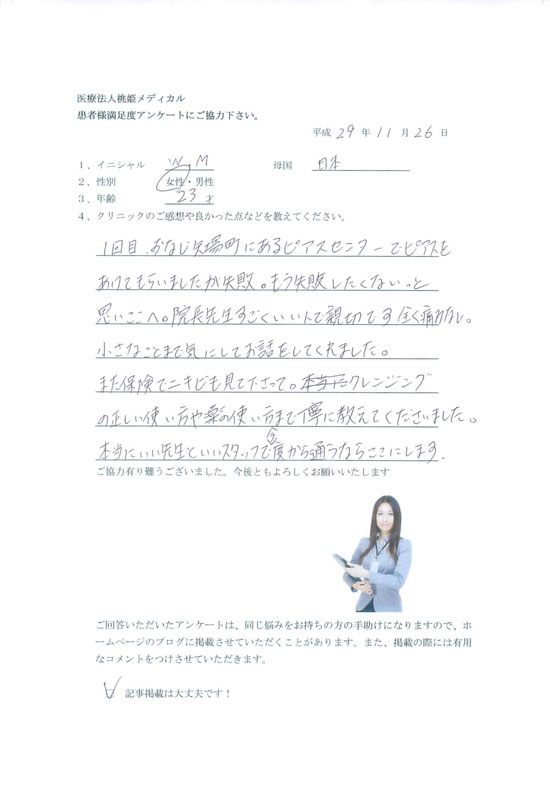 医療法人桃姫メディカル
患者様満足度アンケートにご協力下さい。
平成 29 年 11 月 26 日
1、イニシャル W.M 母国 日本
2、性別 女性・男性
3、年齢 23 才
4、クリニックのご感想や良かった点などを教えてください。
1回目、おなじ矢場町にあるピアスセンターでピアスを
あけてもらいましたが失敗。もう失敗したくないっと
思いここへ。院長先生すごくいい人で親切です 全く痛みなし。
小さなことまで気にしてお話をしてくれました。
また保険でニキビも見て下さって。本当にクレンジング
の正しい使い方や薬の使い方まで丁寧に教えてくださいました。
本当にいい先生といいスタッフで今度から通うならここにします.
ご協力有り難うございました。今後ともよろしくお願いいたします
ご回答いただいたアンケートは、同じ悩みをお持ちの方の手助けになりますので、ホ
ームページのブログに掲載させていただくことがあります。また、掲載の際には有用
なコメントをつけさせていただきます。
記事掲載は大丈夫です！